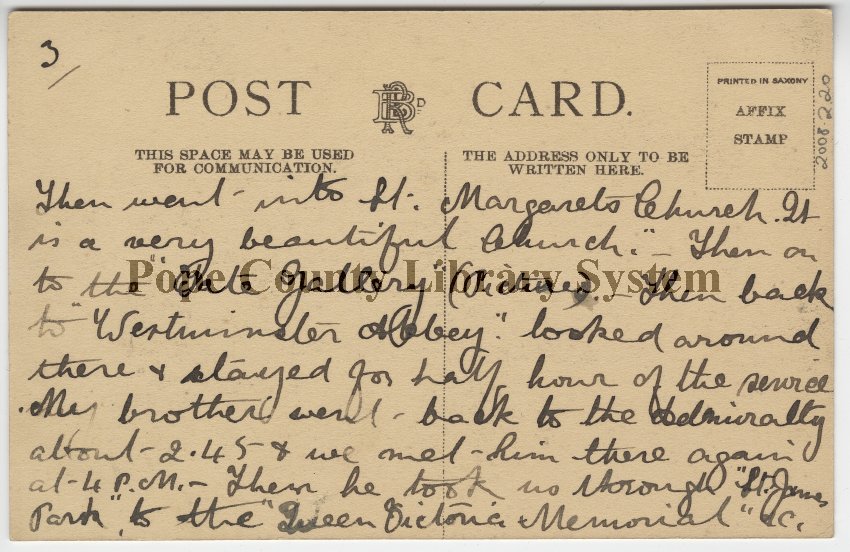 3
POST CARD.
RRB
D
PRINTED IN SAXONY
AFFIX
STAMP
2008.220
THIS SPACE MAY BE USED
FOR COMMUNICATION.
THE ADDRESS ONLY TO BE
WRITTEN HERE.
Then went into St. Margarets Church. It
is a very beautiful Church." - Then on
to the "Tate Gallery" (Pictures). - Then back
to "Westminster Abbey." looked around
there & stayed for half hour of the service
My brother went back to the Admiralty
about 2.45 & we met him there again
at 4 P.M. - Then he took us through "St. James
Park", to the "Queen Victoria Memorial" &c.
Pope County Library System